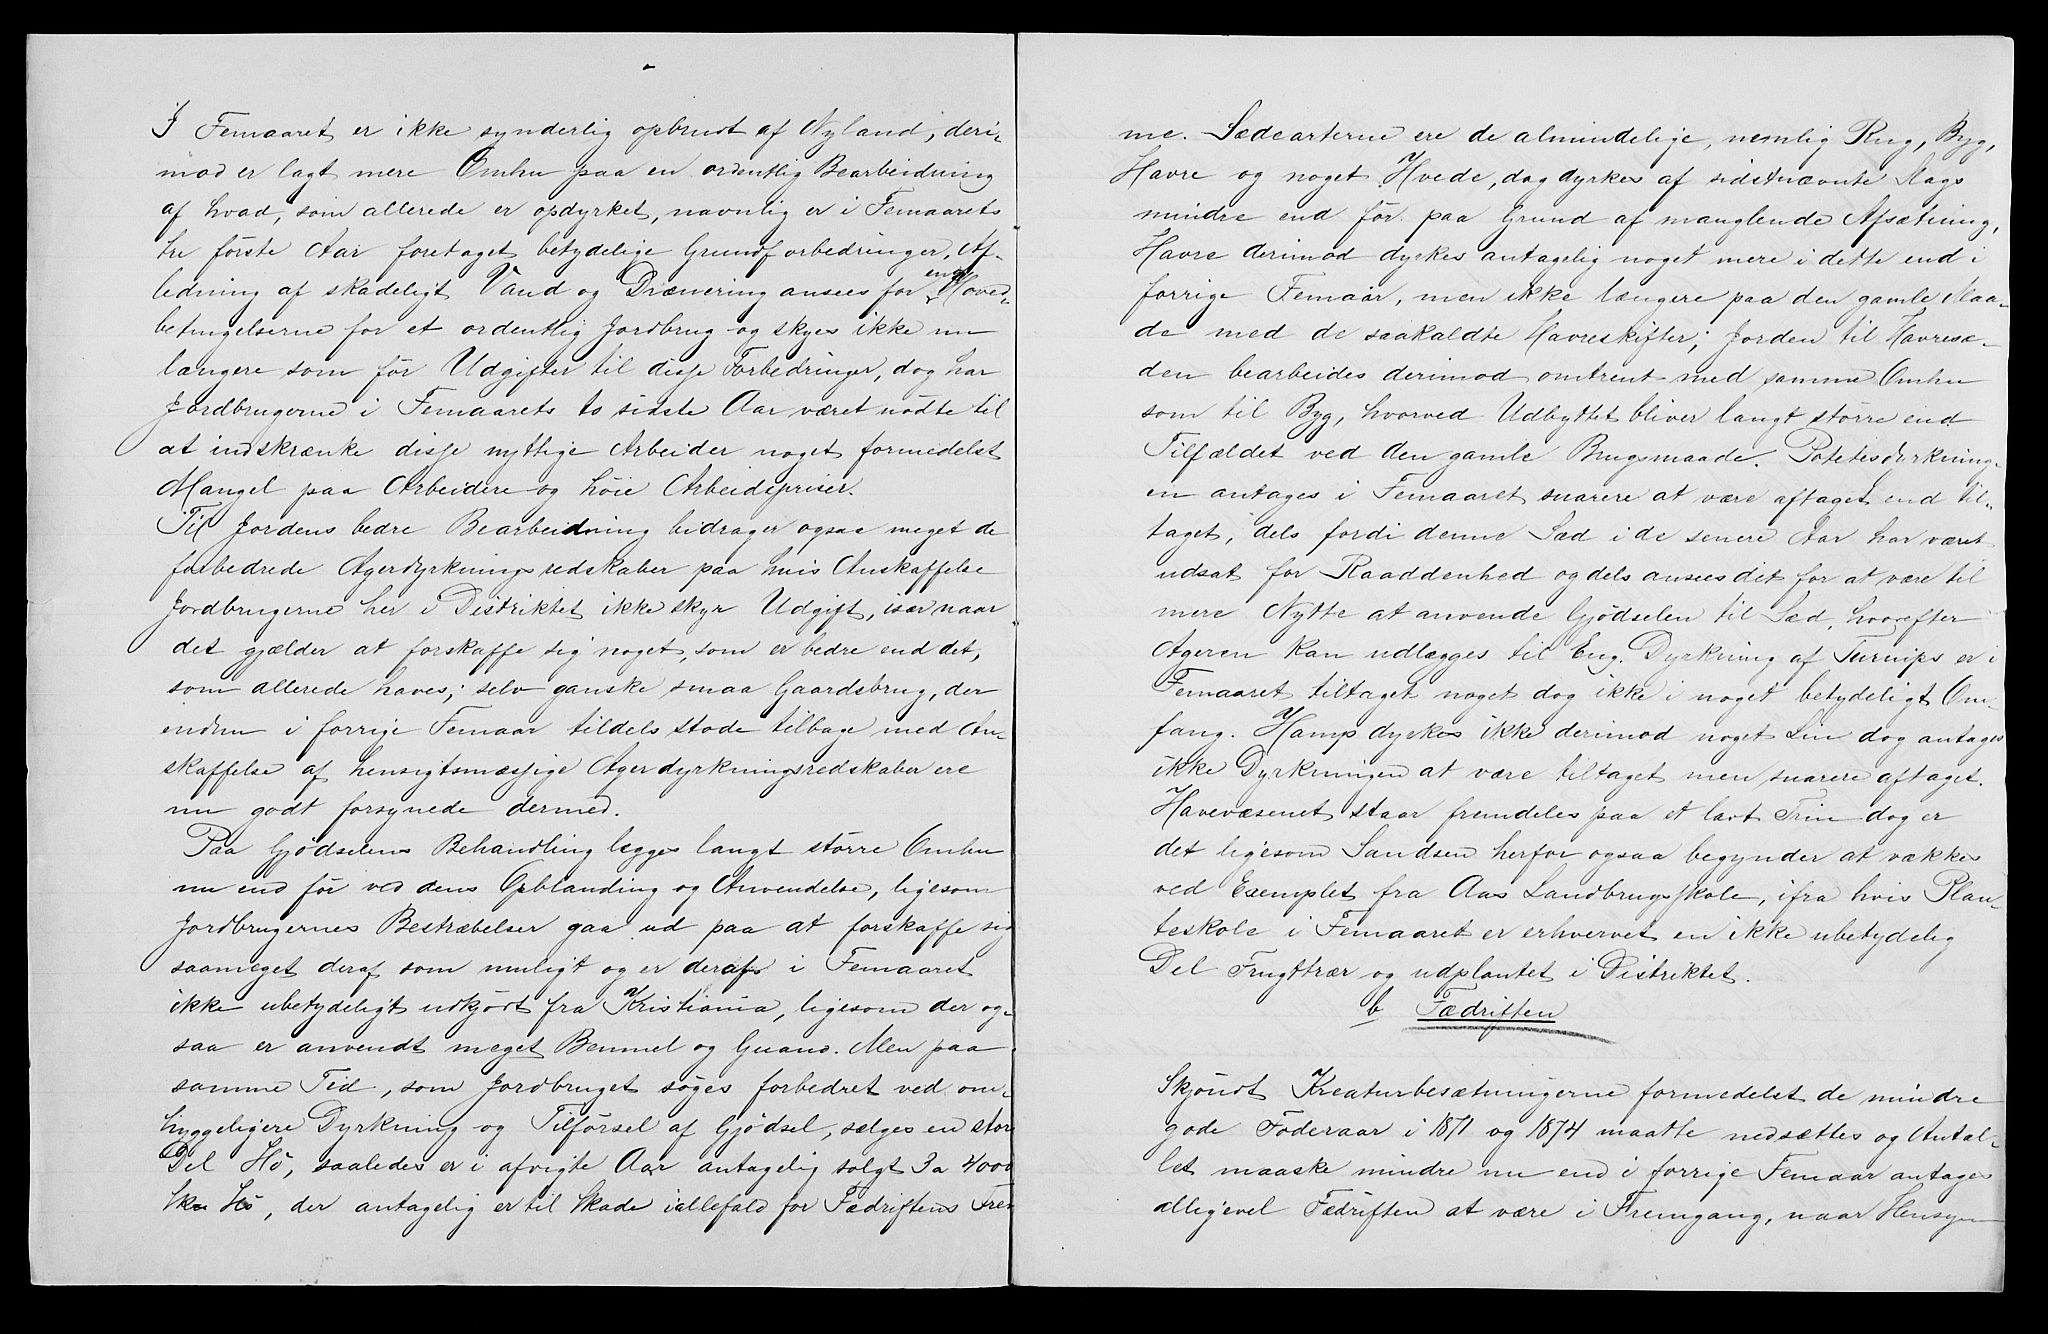 I Femaaret er ikke synderlig opbrudt af Nyland, deri-
mod er lagt mere Omhu paa en ordentlig Bearbeidning
af hvad, som allerede er opdyrket, navnlig er i Femaarets
tre første Aar foretaget betydelige Grundforbedringer. Af-
ledning af skadeligt Vand og Drænering ansees for en af Hoved-
betingelserne for et ordentlig Jordbrug og skyes ikke nu
længere som før Udgifter til disse Forbedringer, dog har
Jordbrugerne i Femaarets to sidste Aar været nødte til
at indskrænke disse nyttige Arbeider noget formedelst
Mangel paa Arbeidere og høie Arbeidspriser.
Til Jordens bedre Bearbeidning bidrager ogsaa meget de
forbedrede Agerdyrkningsredskaber paa hvis Anskaffelse
Jordbrugerne her i Distriktet ikke skyr Udgift, især naar
det gjælder at forskaffe sig noget, som er bedre end det,
som allerede haves; selv ganske smaa Gaardsbrug, der
endnu i forrige Femaar tildels stode tilbage med An-
skaffelse af hensigtsmæssige Agerdyrkningsredskaber ere
nu godt forsynede dermed.
Paa Gjødselens Behandling lægges langt større Omhu
nu end før ved dens Opblanding og Anvendelse, ligesom
Jordbrugernes Bestræbelser gaa ud paa at forskaffe sig
saameget deraf som muligt og er deraf i Femaaret
ikke ubetydeligt udkjørt fra Kristiania, ligesom der og-
saa er anvendt meget Benmel og Guano. Men paa
samme Tid, som Jordbruget søges forbedret ved om-
hyggeligere Dyrkning og Tilførsel af Gjødsel, sælges en stor
Del Hø, saaledes er i afvigte Aar antagelig solgt 3 a 4000
Hø, der antagelig er til Skade iallefald for Fædriftens Frem
me. Sædearterne ere de almindelige, nemlig Rug, Byg,
Havre og noget Hvede, dog dyrkes af sidstnævnte Slags
mindre end før paa Grund af manglende Afsætning,
Havre derimod dyrkes antagelig noget mere i dette end i
forrige Femaar, men ikke længere paa den gamle Maa-
de med de saakaldte Havreskifter; Jorden til Havresæ-
den bearbeides derimod omtrent med samme Omhu
som til Byg, hvorved Udbyttet bliver langt større end
Tilfældet ved den gamle Brugsmaade. Potetesdyrkning-
en antages i Femaaret snarere at være aftaget end til-
taget, dels fordi denne Sæd i de senere Aar har været
udsat for Raaddenhed og dels ansees det for at være til
mere Nytte at anvende Gjødselen til Sæd, hvorefter
Ageren kan udlægges til Eng. Dyrkning af Turnips er i
Femaaret tiltaget noget dog ikke i noget betydeligt Om-
fang. Hamp dyrkes ikke derimod noget Lin dog antages
ikke Dyrkningen at være tiltaget men snarere aftaget.
Havevæsenet staar fremdeles paa et lavt Trin dog er
det ligesom Sandsen herfor ogsaa begynder at vækkes
ved Exemplet fra Aas Landbrugsskole, ifra hvis Plan-
teskole i Femaaret er erhvervet en ikke ubetydelig
Del Frugttrær og udplantet i Distriktet.
b Fædriften
Skjøndt Kreaturbesætningerne formedelst de mindre
gode Foderaar i 1871 og 1874 maatte nedsættes og Antal-
let maaske mindre nu end i forrige Femaar antages
alligevel Fædriften at være i Fremgang, naar Hensyn